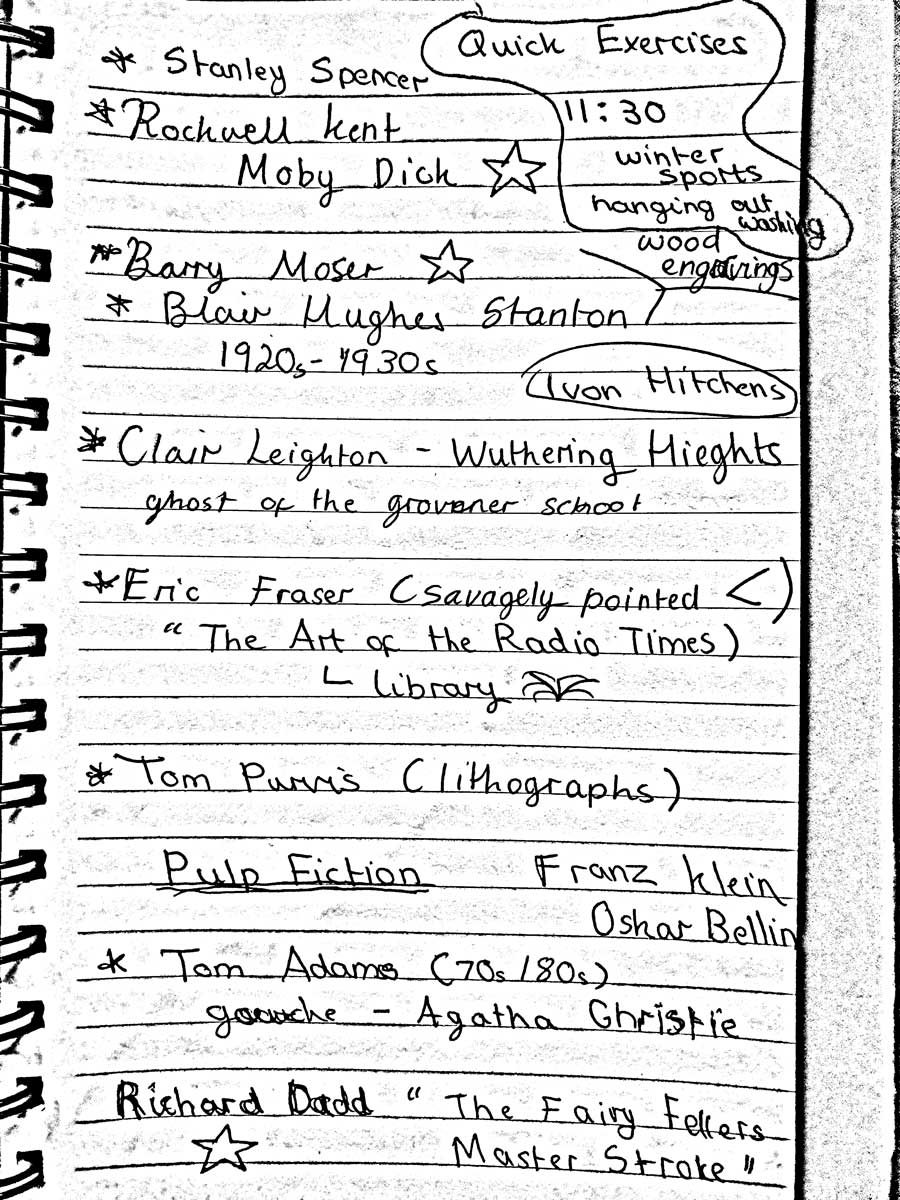 Quick Exercises
* Stanley Spencer
11:30
* Rockwell Kent
Moby Dick ☆
winter
sports
hanging out
washing
* Barry Moser ☆
wood
engravings
* Blair Hughes Stanton
1920s - 1930s
Ivon Hitchens
* Clair Leighton - Wuthering Hieghts
ghost of the grovener school
* Eric Fraser (savagely pointed <)
" The Art of the Radio Times)
library
* Tom Purvis (lithographs)
Pulp Fiction
Franz Klein
Oskar Bellin
* Tom Adams (70s/80s)
gouache - Agatha Christie
Richard Dadd " The Fairy Fellers
☆ Master Stroke "